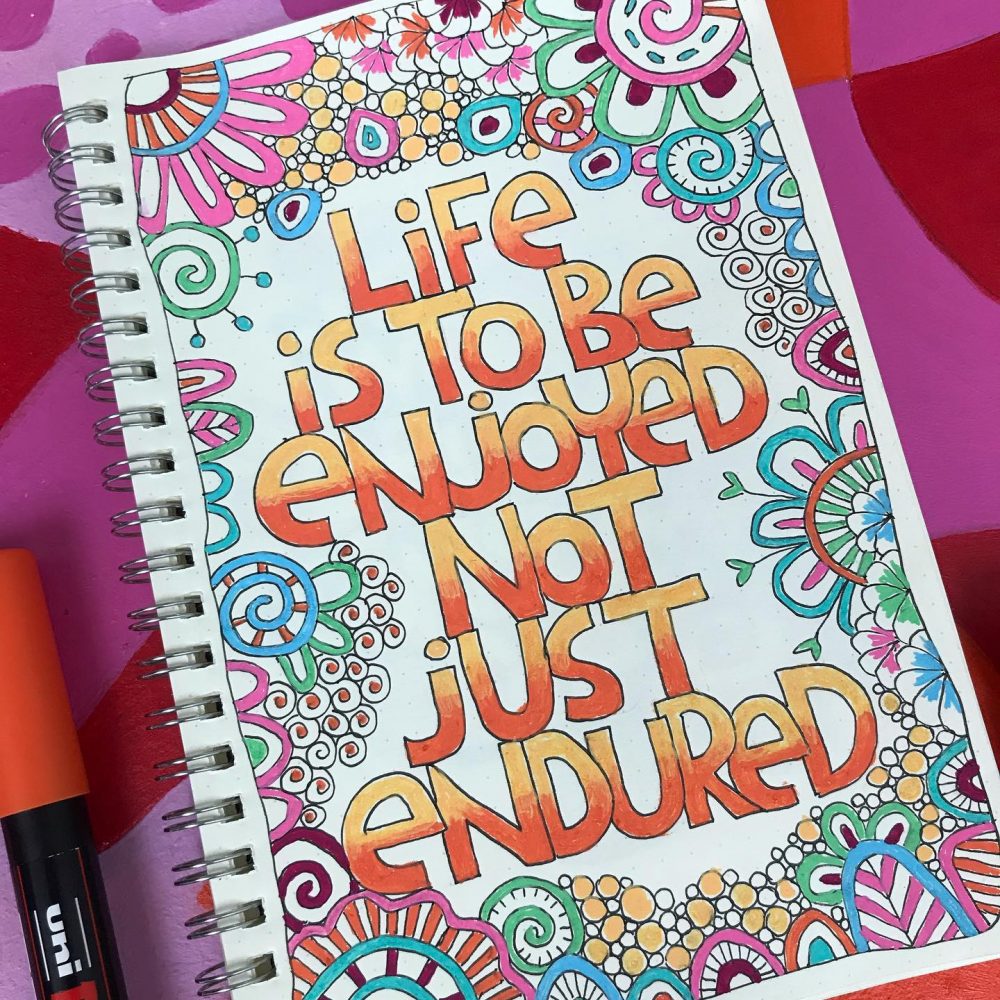 LiFe
iS TO Be
eNjOYeD
NOT
jUST
eNDUReD
uni